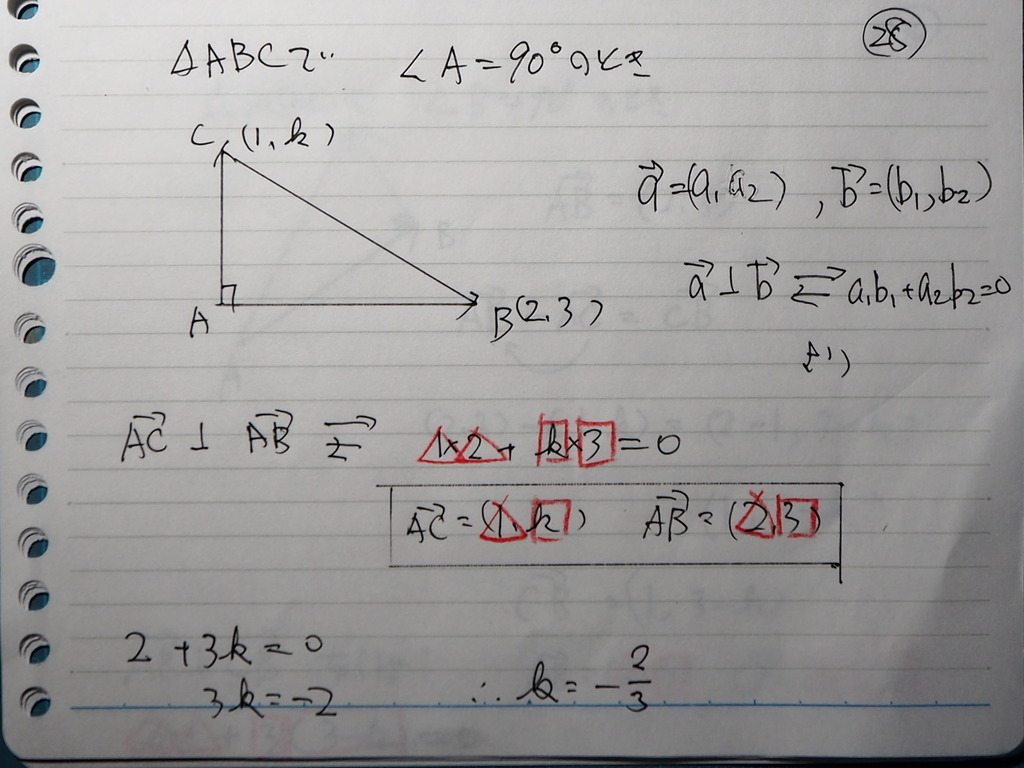 28
△ABCで ∠A=90°のとき
C(1,k)
a→=(a₁,a₂) , b→=(b₁,b₂)
a→⊥b→ ⇄ a₁b₁+a₂b₂=0
より
A
B(2,3)
AC→ ⊥ AB→ ⇄ 1×2+k×3=0
AC→=(1,k) AB→=(2,3)
2+3k=0
3k=-2 ∴ k=-2/3